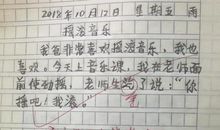 2018年10月12日 星期五 雨
摇滚音乐
我爸非常喜欢摇滚音乐，我也
喜欢。今天上音乐课，我在老师面
前使劲摇，老师生气了说：“你
摇吧！我滚。”